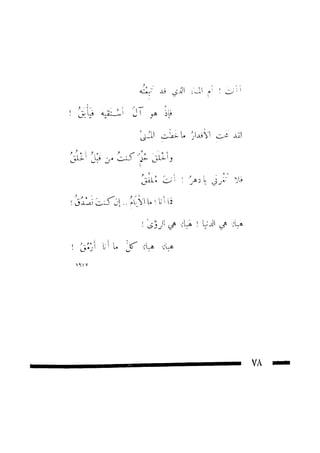 أأنت ! أم الماء الذي قد تبعتُه
فإذ هو آلٌ أستقيه فيأبقُ !
لقد محت الأقدارُ ما خطّت المنىٰ
وأخلق حُلمٌ كنتُ من قبلُ أخلُقُ
فلا تغررني يا دهرُ ! أنتَ مُلفّقُ
فما أنا ! ما الأيامُ .. إن كنتَ تَصدُقُ !
هباءٌ هي الدنيا ! هباءٌ هي الرؤىٰ !
هباءٌ هباءٌ كلُّ ما أنا أرْمُقُ !
٧٨